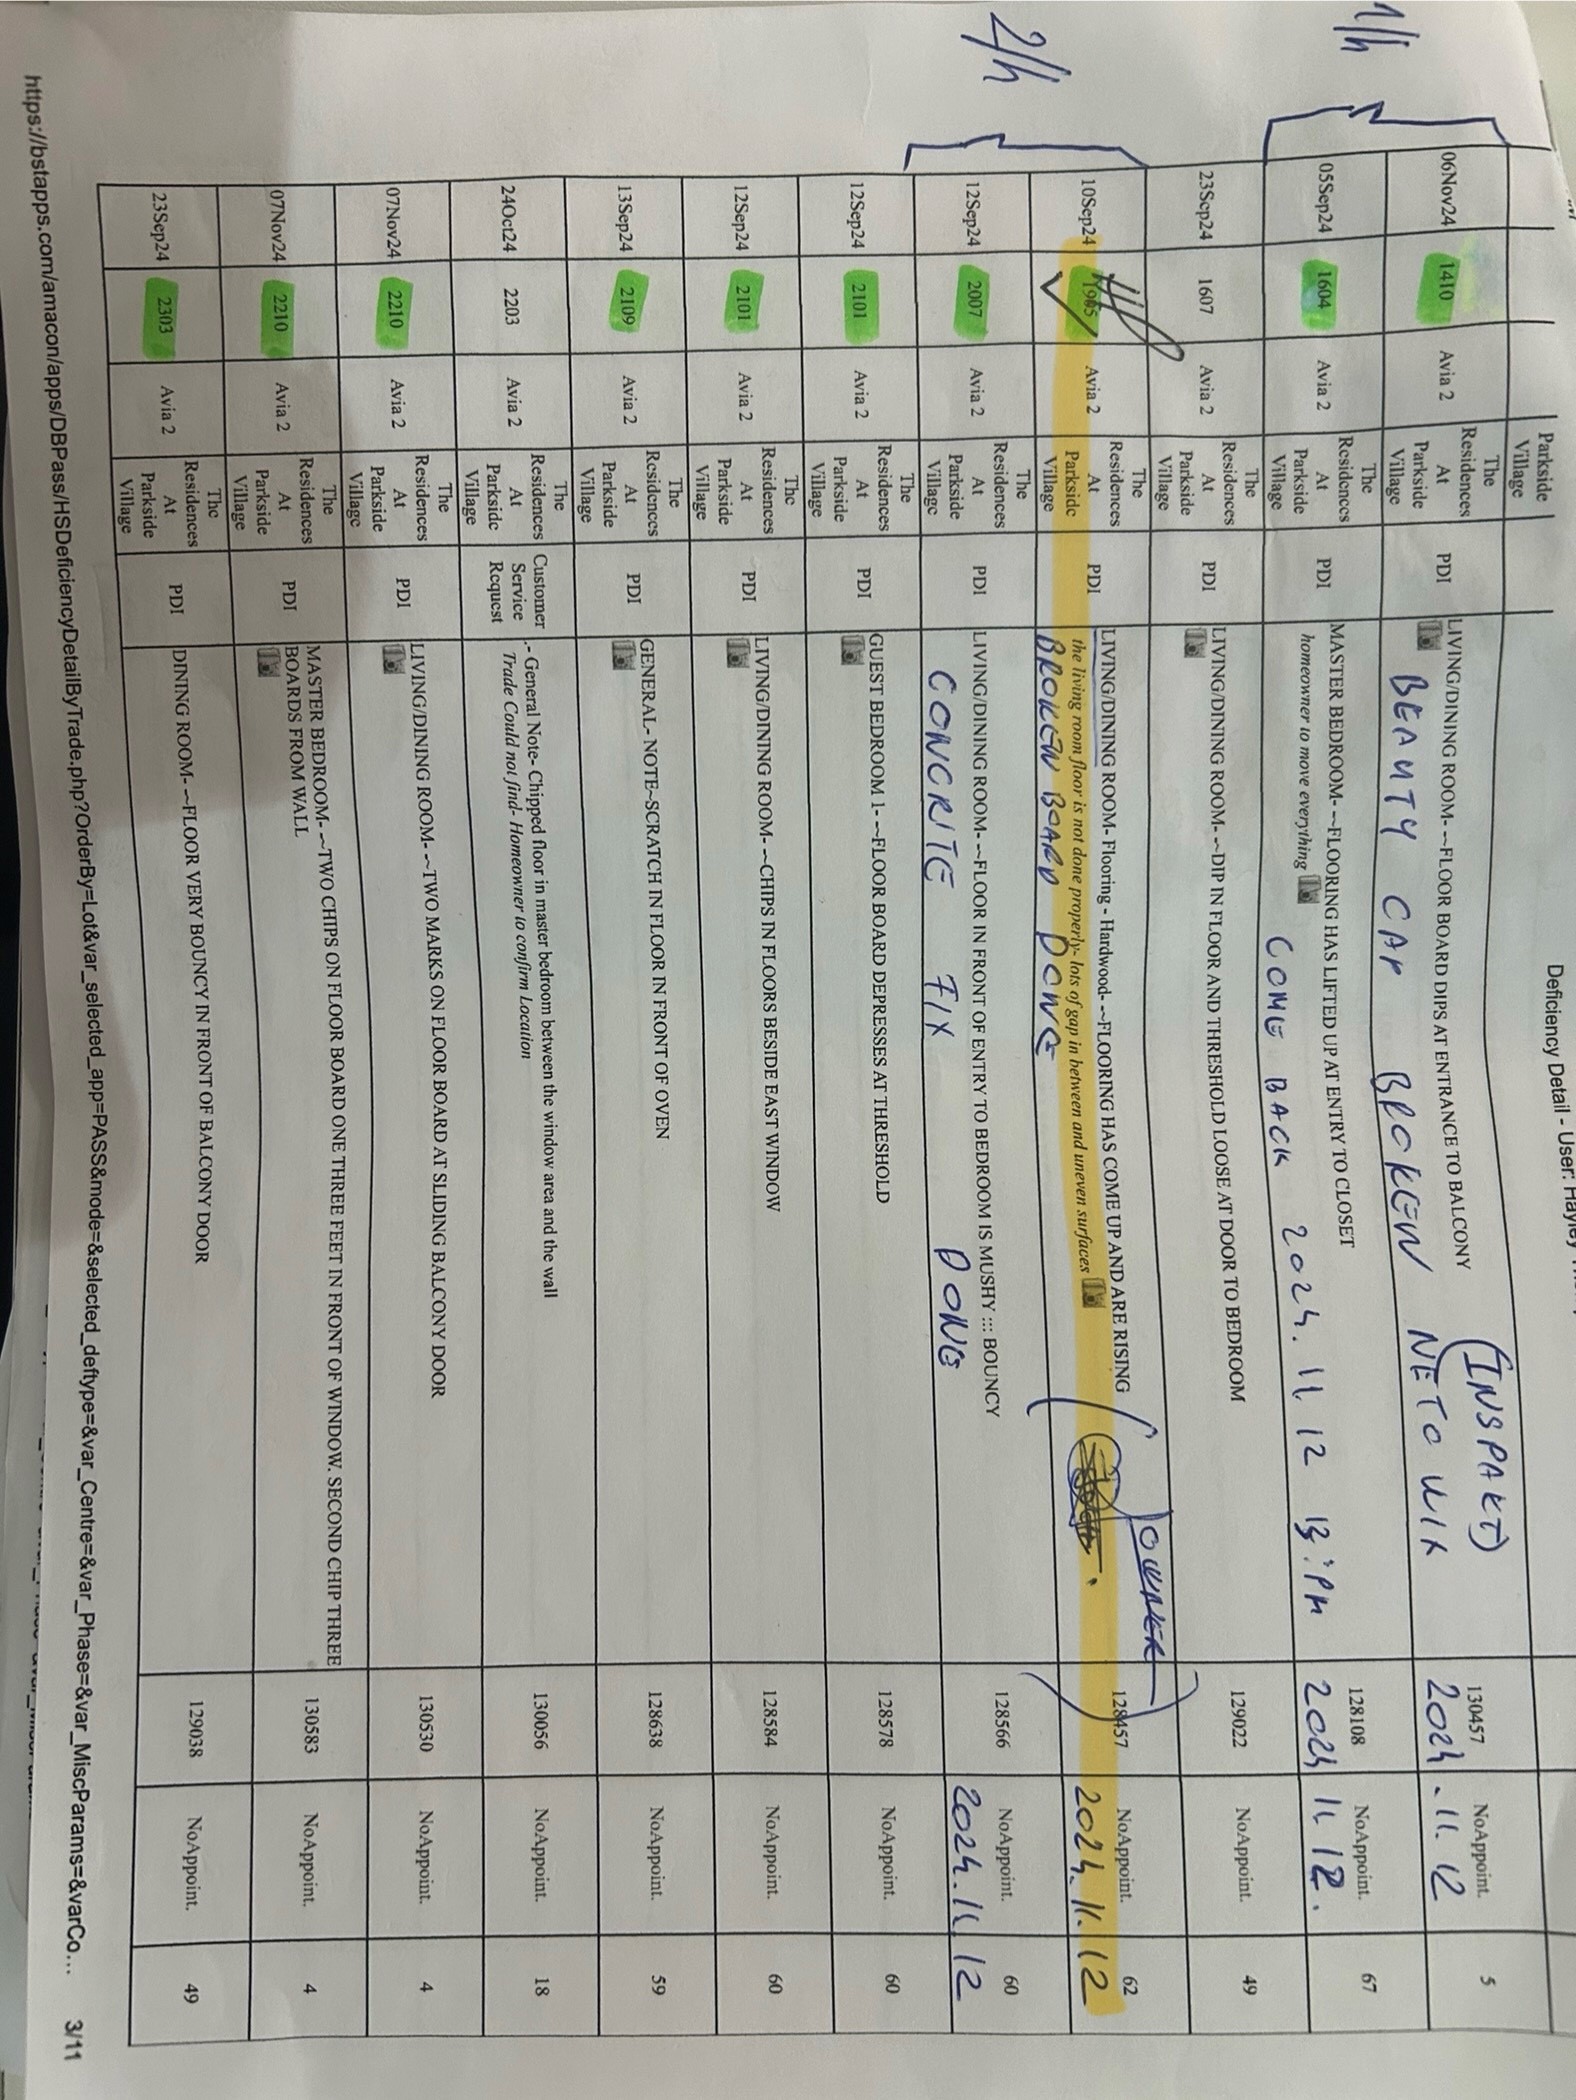 Deficiency Detail - User: Hayley
Parkside
Village
1/h
06Nov24
1410
Avia 2
The
Residences
At
Parkside
Village
PDI
LIVING/DINING ROOM- -~FLOOR BOARD DIPS AT ENTRANCE TO BALCONY
(INSPAKT)
BEAUTY CAP BROKEN
130457
NoAppoint.
5
2024.11.12
05Sep24
1604
Avia 2
The
Residences
At
Parkside
Village
PDI
MASTER BEDROOM- -~FLOORING HAS LIFTED UP AT ENTRY TO CLOSET
homeowner to move everything
COME BACK 2024.11.12
128108
NoAppoint.
67
2024 11 12.
23Sep24
1607
Avia 2
The
Residences
At
Parkside
Village
PDI
LIVING/DINING ROOM- -~DIP IN FLOOR AND THRESHOLD LOOSE AT DOOR TO BEDROOM
129022
NoAppoint.
49
2/h
10Sep24
1905
Avia 2
The
Residences
At
Parkside
Village
PDI
LIVING/DINING ROOM- Flooring - Hardwood- -~FLOORING HAS COME UP AND ARE RISING
the living room floor is not done properly- lots of gap in between and uneven surfaces
BROKEN BOARD DONE
OWNER
128457
NoAppoint.
62
2024.11.12
12Sep24
2007
Avia 2
The
Residences
At
Parkside
Village
PDI
LIVING/DINING ROOM- -~FLOOR IN FRONT OF ENTRY TO BEDROOM IS MUSHY ::: BOUNCY
CONCRITE FIX DONE
128566
NoAppoint.
60
2024.11.12
12Sep24
2101
Avia 2
The
Residences
At
Parkside
PDI
GUEST BEDROOM 1- -~FLOOR BOARD DEPRESSES AT THRESHOLD
128578
NoAppoint.
60
12Sep24
2101
Avia 2
The
Residences
At
Parkside
Village
PDI
LIVING/DINING ROOM- -~CHIPS IN FLOORS BESIDE EAST WINDOW
128584
NoAppoint.
60
13Sep24
2109
Avia 2
The
Residences
At
Parkside
Village
PDI
GENERAL- NOTE~SCRATCH IN FLOOR IN FRONT OF OVEN
128638
NoAppoint.
59
24Oct24
2203
Avia 2
The
Residences
At
Parkside
Village
Customer
Service
Request
.- General Note- Chipped floor in master bedroom between the window area and the wall
Trade Could not find- Homeowner to confirm Location
130056
NoAppoint.
18
07Nov24
2210
Avia 2
The
Residences
At
Parkside
Village
PDI
LIVING/DINING ROOM- -~TWO MARKS ON FLOOR BOARD AT SLIDING BALCONY DOOR
130530
NoAppoint.
4
07Nov24
2210
Avia 2
The
Residences
At
Parkside
Village
PDI
MASTER BEDROOM- -~TWO CHIPS ON FLOOR BOARD ONE THREE FEET IN FRONT OF WINDOW. SECOND CHIP THREE
BOARDS FROM WALL
130583
NoAppoint.
4
23Sep24
2303
Avia 2
The
Residences
At
Parkside
Village
PDI
DINING ROOM- -~FLOOR VERY BOUNCY IN FRONT OF BALCONY DOOR
129038
NoAppoint.
49
https://bstapps.com/amacon/apps/DBPass/HSDeficiencyDetailByTrade.php?OrderBy=Lot&var_selected_app=PASS&mode=&selected_deftype=&var_Centre=&var_Phase=&var_MiscParams=&varCo... 3/11